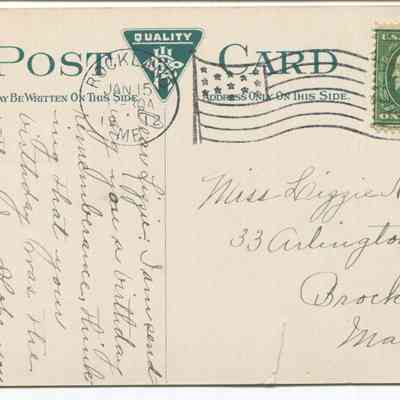 POST CARD
QUALITY
AY BE WRITTEN ON THIS SIDE
ADDRESS ONLY ON THIS SIDE
ROCKLAND
JAN 15
ME
U.S.
ON
Dear Lizzie: I am send
ing you a birthday
rememberance, think
ing that your
birthday was the
Miss Lizzie
33 Arlington
Brock
Ma